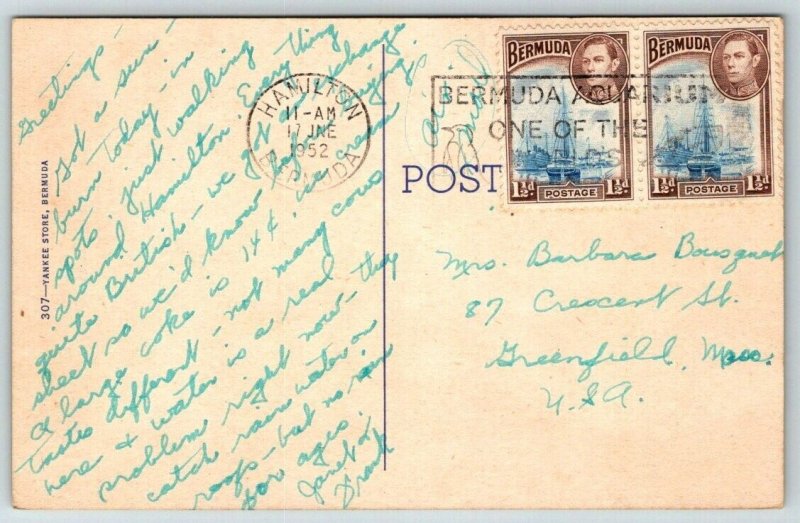 Greetings -
Got a sun-
burn today - in
spots, just walking
around Hamilton. Everything
quite British - we got an exchange
sheet so we'd know
A large coke is 14¢, ice cream
tastes different - not many cows
here & water is a real
problem right now - they
catch rain water on
roofs - but no rain
for ages.
Janet &
Frank
307—YANKEE STORE, BERMUDA
HAMILTON
11-AM
17 JNE
1952
BERMUDA
BERMUDA AQUARIUM
ONE OF THE
POST
BERMUDA
1½d
POSTAGE
BERMUDA
1½d
POSTAGE
Mrs. Barbara Bousquet
87 Crescent St.
Greenfield, Mass.
U.S.A.